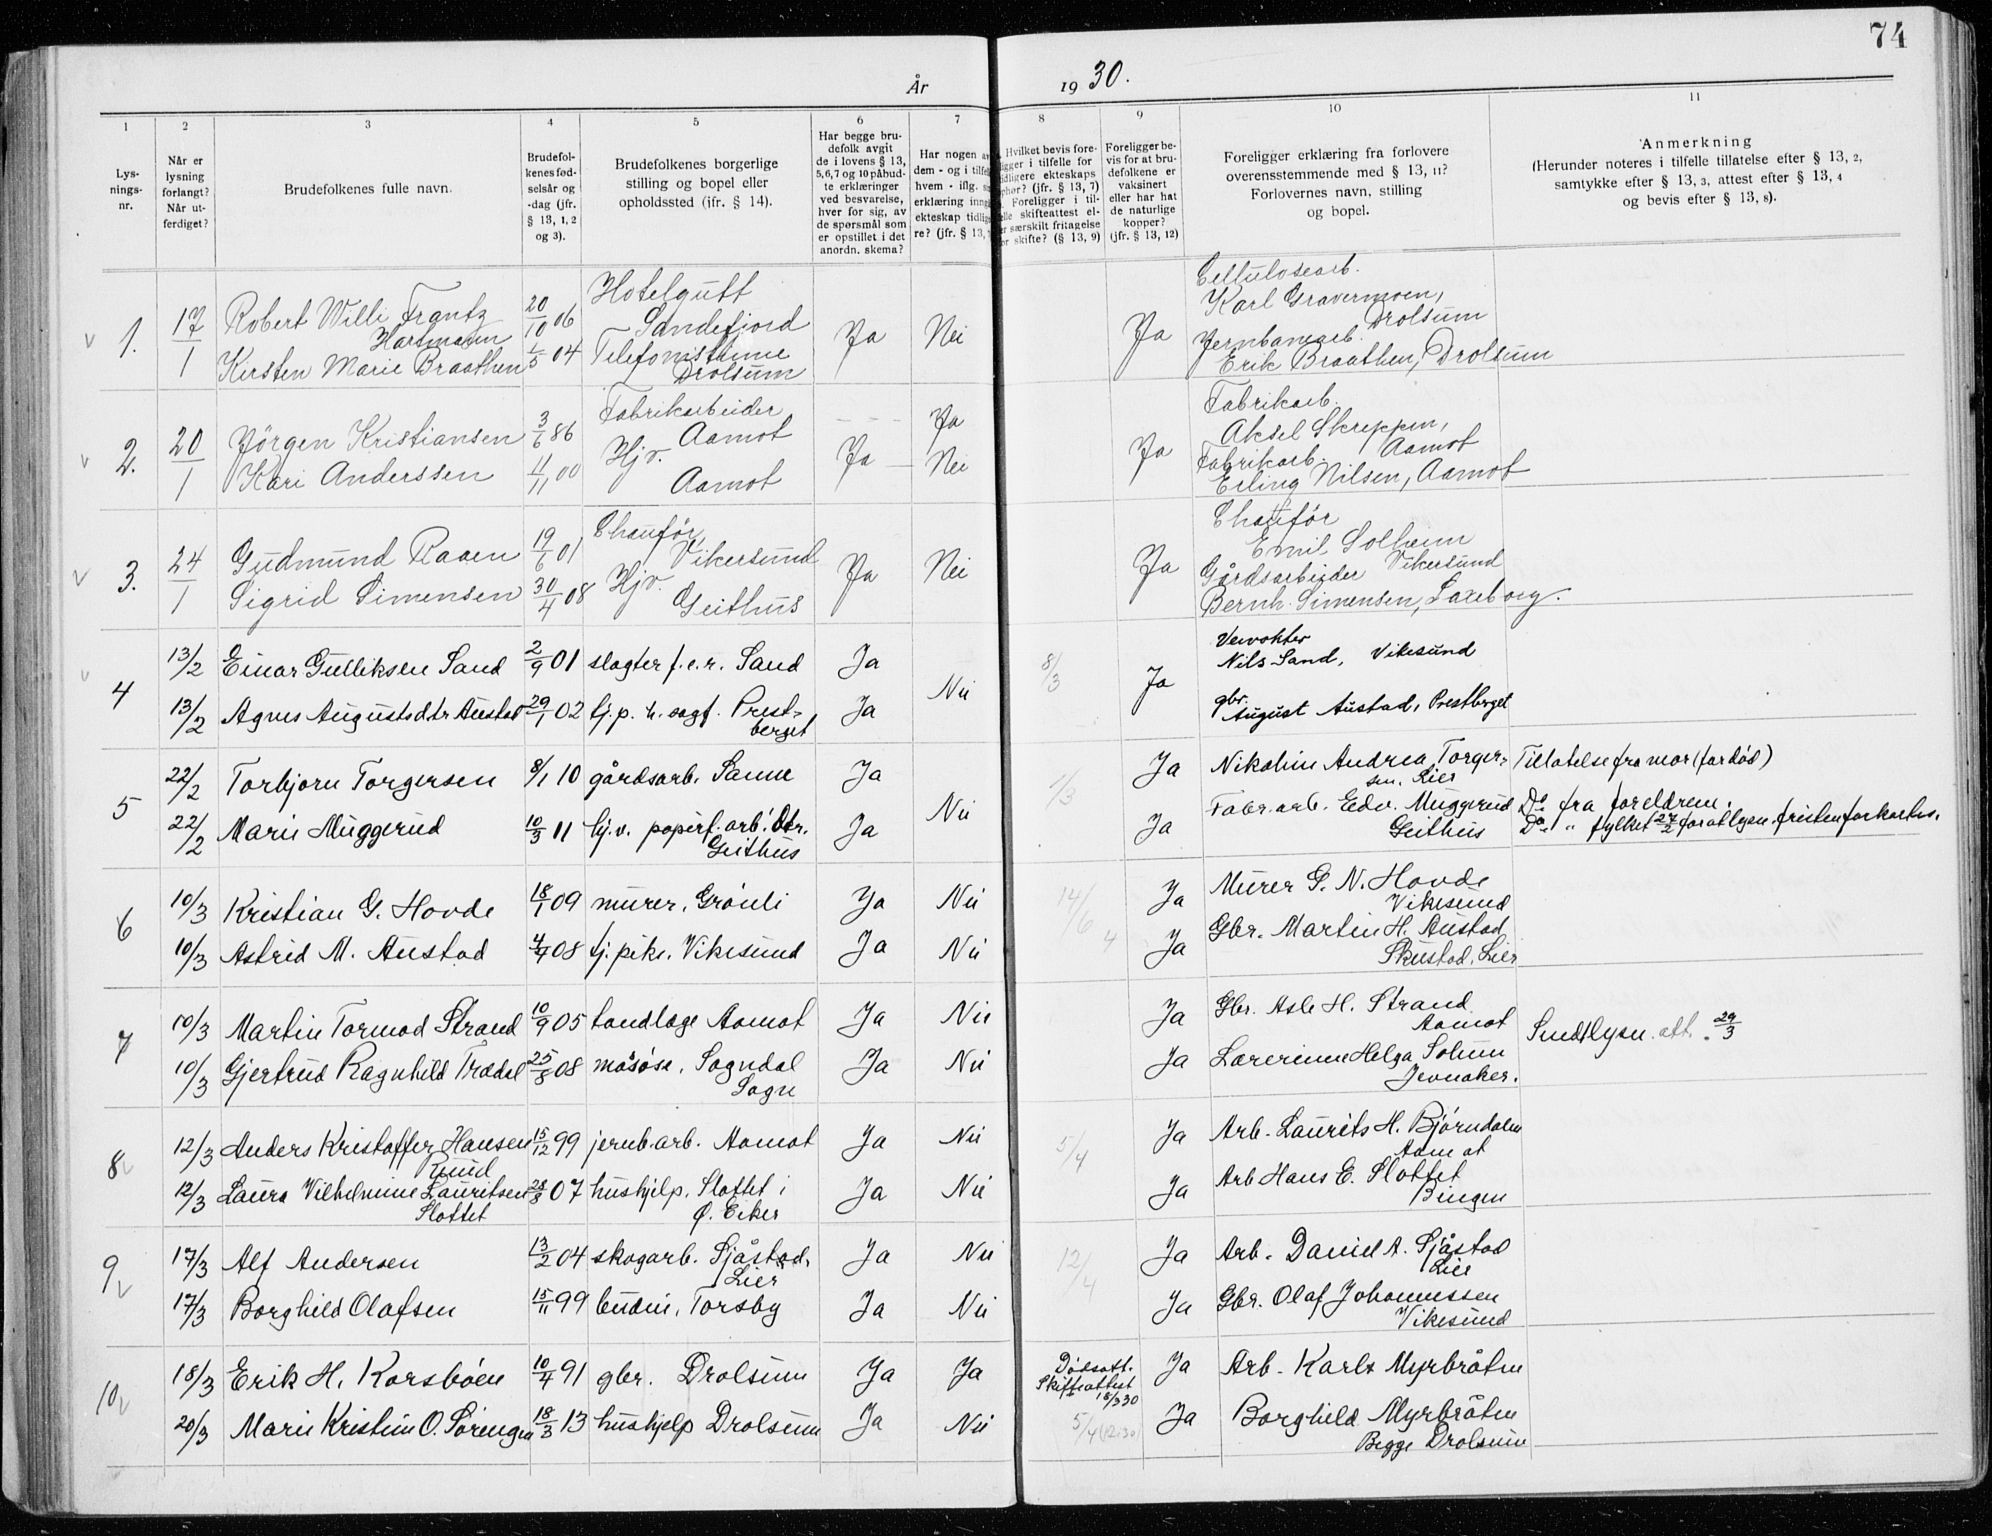 74
År 1930.
1 2 3 4 5 6 7 8 9 10 11
Lys-
nings-
nr.
Når er
lysning
forlangt?
Når ut-
ferdiget?
Brudefolkenes fulle navn.
Brudefol-
kenes fød-
selsår og
-dag (jfr.
§ 13, 1, 2
og 3).
Brudefolkenes borgerlige
stilling og bopel eller
opholdssted (jfr. § 14).
Har begge bru-
defolk avgit
de i lovens § 13,
5, 6, 7 og 10 påbud-
te erklæringer
ved besvarelse,
hver for sig, av
de spørsmål som
er opstillet i det
anordn. skema?
Har nogen av
dem - og i tilfe
hvem - iflg. sa
erklæring inng
ekteskap tidlig
re? (jfr. § 13,
Hvilket bevis fore-
ligger i tilfelle for
tidligere ekteskaps
ophør? (jfr. § 13, 7)
Foreligger i til-
felle skifteattest el-
er særskilt fritagelse
for skifte? (§ 13, 9)
Foreligger be-
vis for at bru-
defolkene er
vaksinert
eller har hat
de naturlige
kopper?
(jfr. § 13, 12)
Foreligger erklæring fra forlovere
overensstemmende med § 13, 11?
Forlovernes navn, stilling
og bopel.
Anmerkning
(Herunder noteres i tilfelle tillatelse efter § 13, 2,
samtykke efter § 13, 3, attest efter § 13, 4
og bevis efter § 13, 8).
1. 17/1 Robert Willi Frantz
Hartmann 20/10 06 Hotelgutt
Sandefjord Ja Nei Ja Cellulosearb.
Karl Gravermoen,
Drolsum
Kirsten Marie Braathen 1/5 04 Telefonistinne
Drolsum Jernbanearb.
Erik Braathen, Drolsum
2. 20/1 Jörgen Kristiansen 3/6 86 Fabrikarbeider
Aamot Ja Ja Fabrikarb.
Aksel Skreppen,
Aamot
Kari Anderssen 4/11 00 Hjv.
Aamot Ja Nei Fabrikarb.
Erling Nilsen, Aamot
3. 24/1 Gudmund Raaen 19/6 01 Chauför,
Vikersund Ja Nei Ja Chauför
Emil Solheim
Vikersund
Sigrid Simensen 30/4 08 Hjv.
Geithus Gårdsarbeider
Bernh. Simensen,
4 13/2 Einar Gulliksen Sand 2/9 01 slagter f.e.r. Sand Ja Nei 8/3 Ja
Nils Sand, Vikesund
13/2 Agnes Augustsdtr Austad 29/1 02 hj.p. h. sagf. Prest-
berget Ja gbr.
August Austad, Prestberget
5 22/2 Torbjorn Torgersen 8/1 10 gårdsarb. Sanne Ja Nei 1/3 Ja Nikoline Andrea Torger-
sen. Lier Tillatelse fra mor (far död)
22/2 Marie Muggerud 10/3 11 hj.v. papirf.arb. dtr.
Geithus Ja Ja Fabr.arb. Edv. Muggerud
Geithus Do fra foreldrene.
Do " fylket 27/2 for at lysn.fristen forkortes.
6 10/3 Kristian G. Hovde 18/1 09 murer, Grönli Ja Nei 14/6 Ja Murer G. N. Hovde
Vikesund
10/3 Astrid M. Austad 4/4 08 tj.pike, Vikesund Ja Nei 4 Ja Gbr. Martin H. Austad
Skustad, Lier
7 10/3 Martin Tormod Strand 10/9 05 tandlæge Aamot Ja Nei Ja Gbr. Asle H. Strand
Aamot
10/3 Gjertrud Ragnhild Trædal 25/8 08 Sogndal
Sogn Ja Nei Ja Lærerinne Helga Solum
Jevnaker. Sendt lysn.att. 29/3
8 12/3 Anders Kristoffer Hansen
Ruud 15/12 99 jernb.arb. Aamot Ja Nei 5/4 Ja Arb. Laurits H. Björndalen
Aamot
12/3 Laura Vilhelmine Lauritsen
Slottet 28/8 07 hushjelp, Slottet i
Ö. Eiker Ja Nei Ja Arb Hans E. Slottet
Bingen
9 17/3 Alf Andersen 13/2 04 skogarb. Sjåstad,
Lier Ja Nei 12/4 Ja Arb. Daniel A. Sjåstad
Lier
17/3 Borghild Olafsen 15/11 99 budeie, Torsby Ja Nei Ja Gbr. Olaf Johannessen
Vikesund
10 18/3 Erik H. Korsböen 10/4 91 gbr. Drolsum Ja Ja Dödsatt.
Skifteattest
18/3 30 Ja Arb. Karl Myrbråten
20/3 Marie Kristine O. Sörengen 18/3 13 hushjelp Drolsum Ja Nei 5/4 Ja Borghild Myrbråten
Begge Drolsum